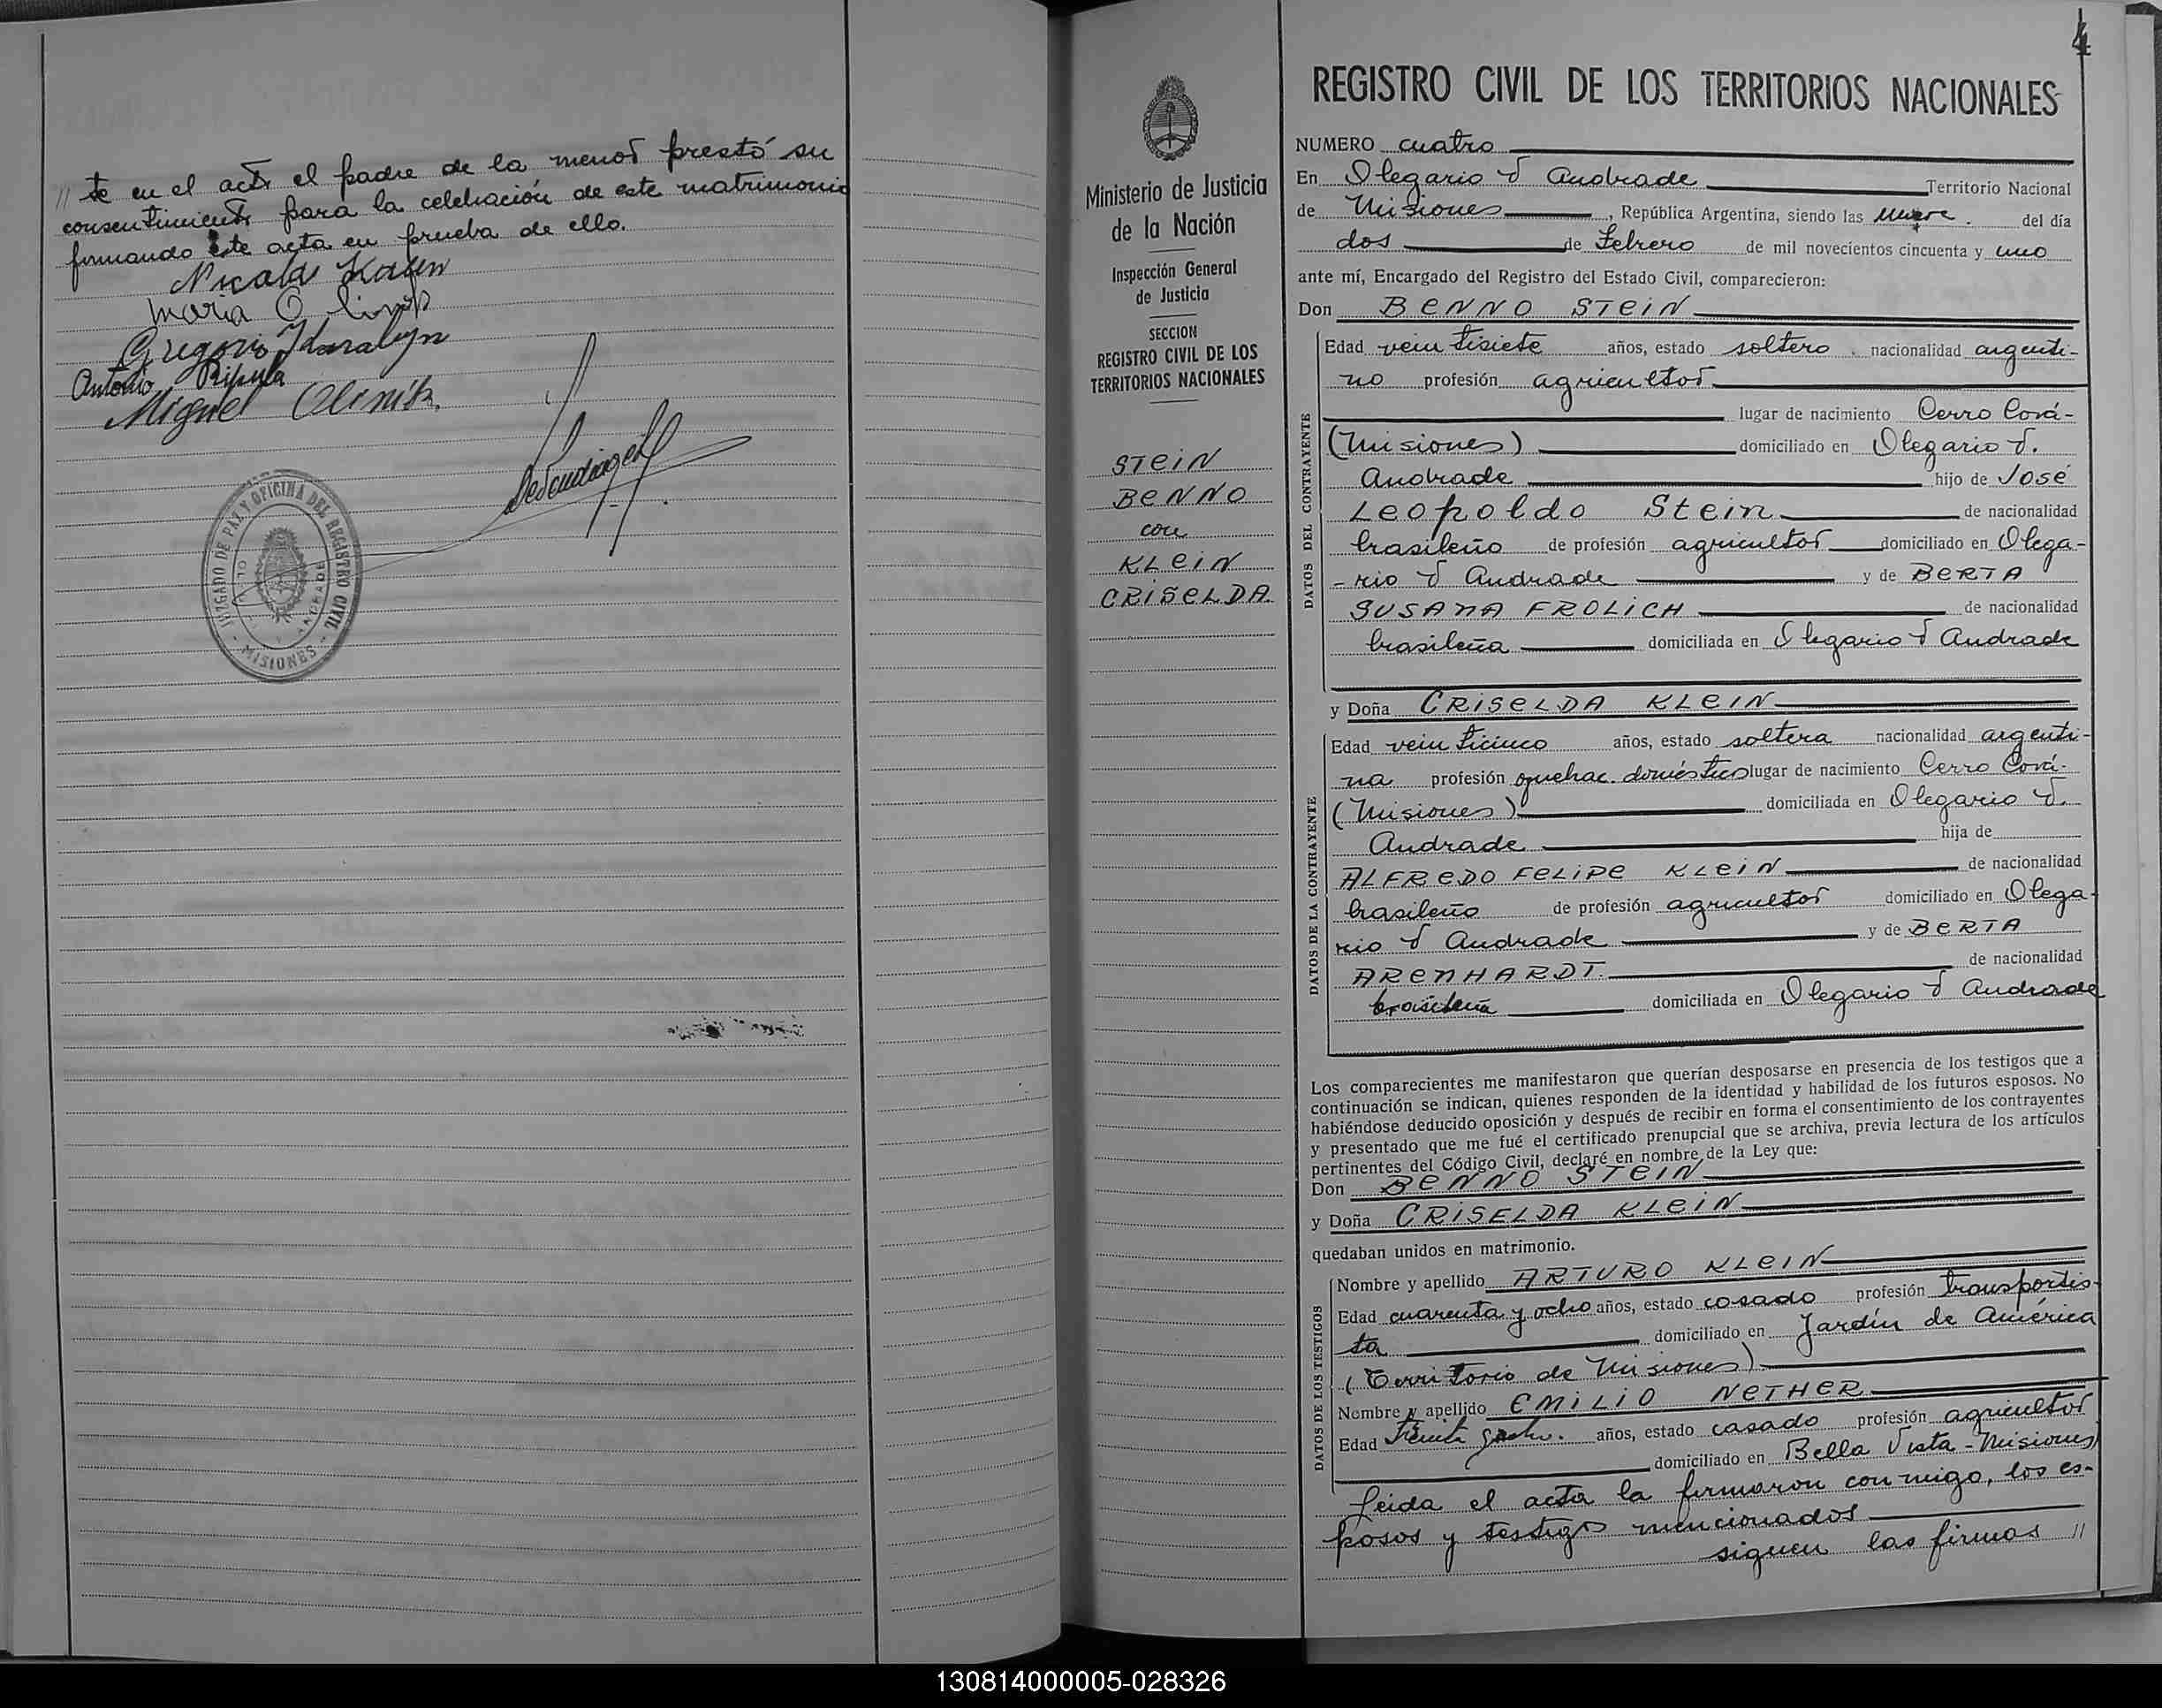 // te en el acto el padre de la menor prestó su
consentimiento para la celebración de este matrimonio
firmando este acta en prueba de ello.
Maria O
Gregorio
Antonio
Miguel Olinik
JUZGADO DE PAZ Y OFICINA DEL REGISTRO CIVIL
- MISIONES -
Ministerio de Justicia
de la Nación
Inspección General
de Justicia
SECCION
REGISTRO CIVIL DE LOS
TERRITORIOS NACIONALES
STEIN
BENNO
con
KLEIN
CRISELDA
4
REGISTRO CIVIL DE LOS TERRITORIOS NACIONALES
NUMERO cuatro
En Olegario V Andrade Territorio Nacional
de Misiones, República Argentina, siendo las nueve. del día
dos de Febrero de mil novecientos cincuenta y uno
ante mí, Encargado del Registro del Estado Civil, comparecieron:
Don BENNO STEIN
DATOS DEL CONTRAYENTE
Edad veintisiete años, estado soltero. nacionalidad argenti-
no profesión agricultor
lugar de nacimiento Cerro Corá-
(Misiones) domiciliado en Olegario V.
Andrade hijo de José
Leopoldo Stein de nacionalidad
brasileño de profesión agricultor domiciliado en Olega-
-rio V Andrade y de BERTA
SUSANA FROLICH de nacionalidad
brasileña domiciliada en Olegario V Andrade
y Doña CRISELDA KLEIN
DATOS DE LA CONTRAYENTE
Edad veinticinco años, estado soltera nacionalidad argenti-
na profesión quehac. domésticos lugar de nacimiento Cerro Corá-
(Misiones) domiciliada en Olegario V.
Andrade hija de
ALFREDO FELIPE KLEIN de nacionalidad
brasileño de profesión agricultor domiciliado en Olega-
rio V Andrade y de BERTA
ARENHARDT. de nacionalidad
brasileña domiciliada en Olegario V Andrade
Los comparecientes me manifestaron que querían desposarse en presencia de los testigos que a
continuación se indican, quienes responden de la identidad y habilidad de los futuros esposos. No
habiéndose deducido oposición y después de recibir en forma el consentimiento de los contrayentes
y presentado que me fué el certificado prenupcial que se archiva, previa lectura de los artículos
pertinentes del Código Civil, declaré en nombre de la Ley que:
Don BENNO STEIN
y Doña CRISELDA KLEIN
quedaban unidos en matrimonio.
DATOS DE LOS TESTIGOS
Nombre y apellido ARTURO KLEIN
Edad cuarenta y ocho años, estado casado profesión transportis-
ta domiciliado en Jardín de América
(Territorio de Misiones)
Nombre y apellido EMILIO NETHER
Edad treinta años, estado casado profesión agricultor
domiciliado en Bella Vista - Misiones
Leida el acta la firmaron conmigo, los es-
posos y testigos mencionados
siguen las firmas //
130814000005-028326